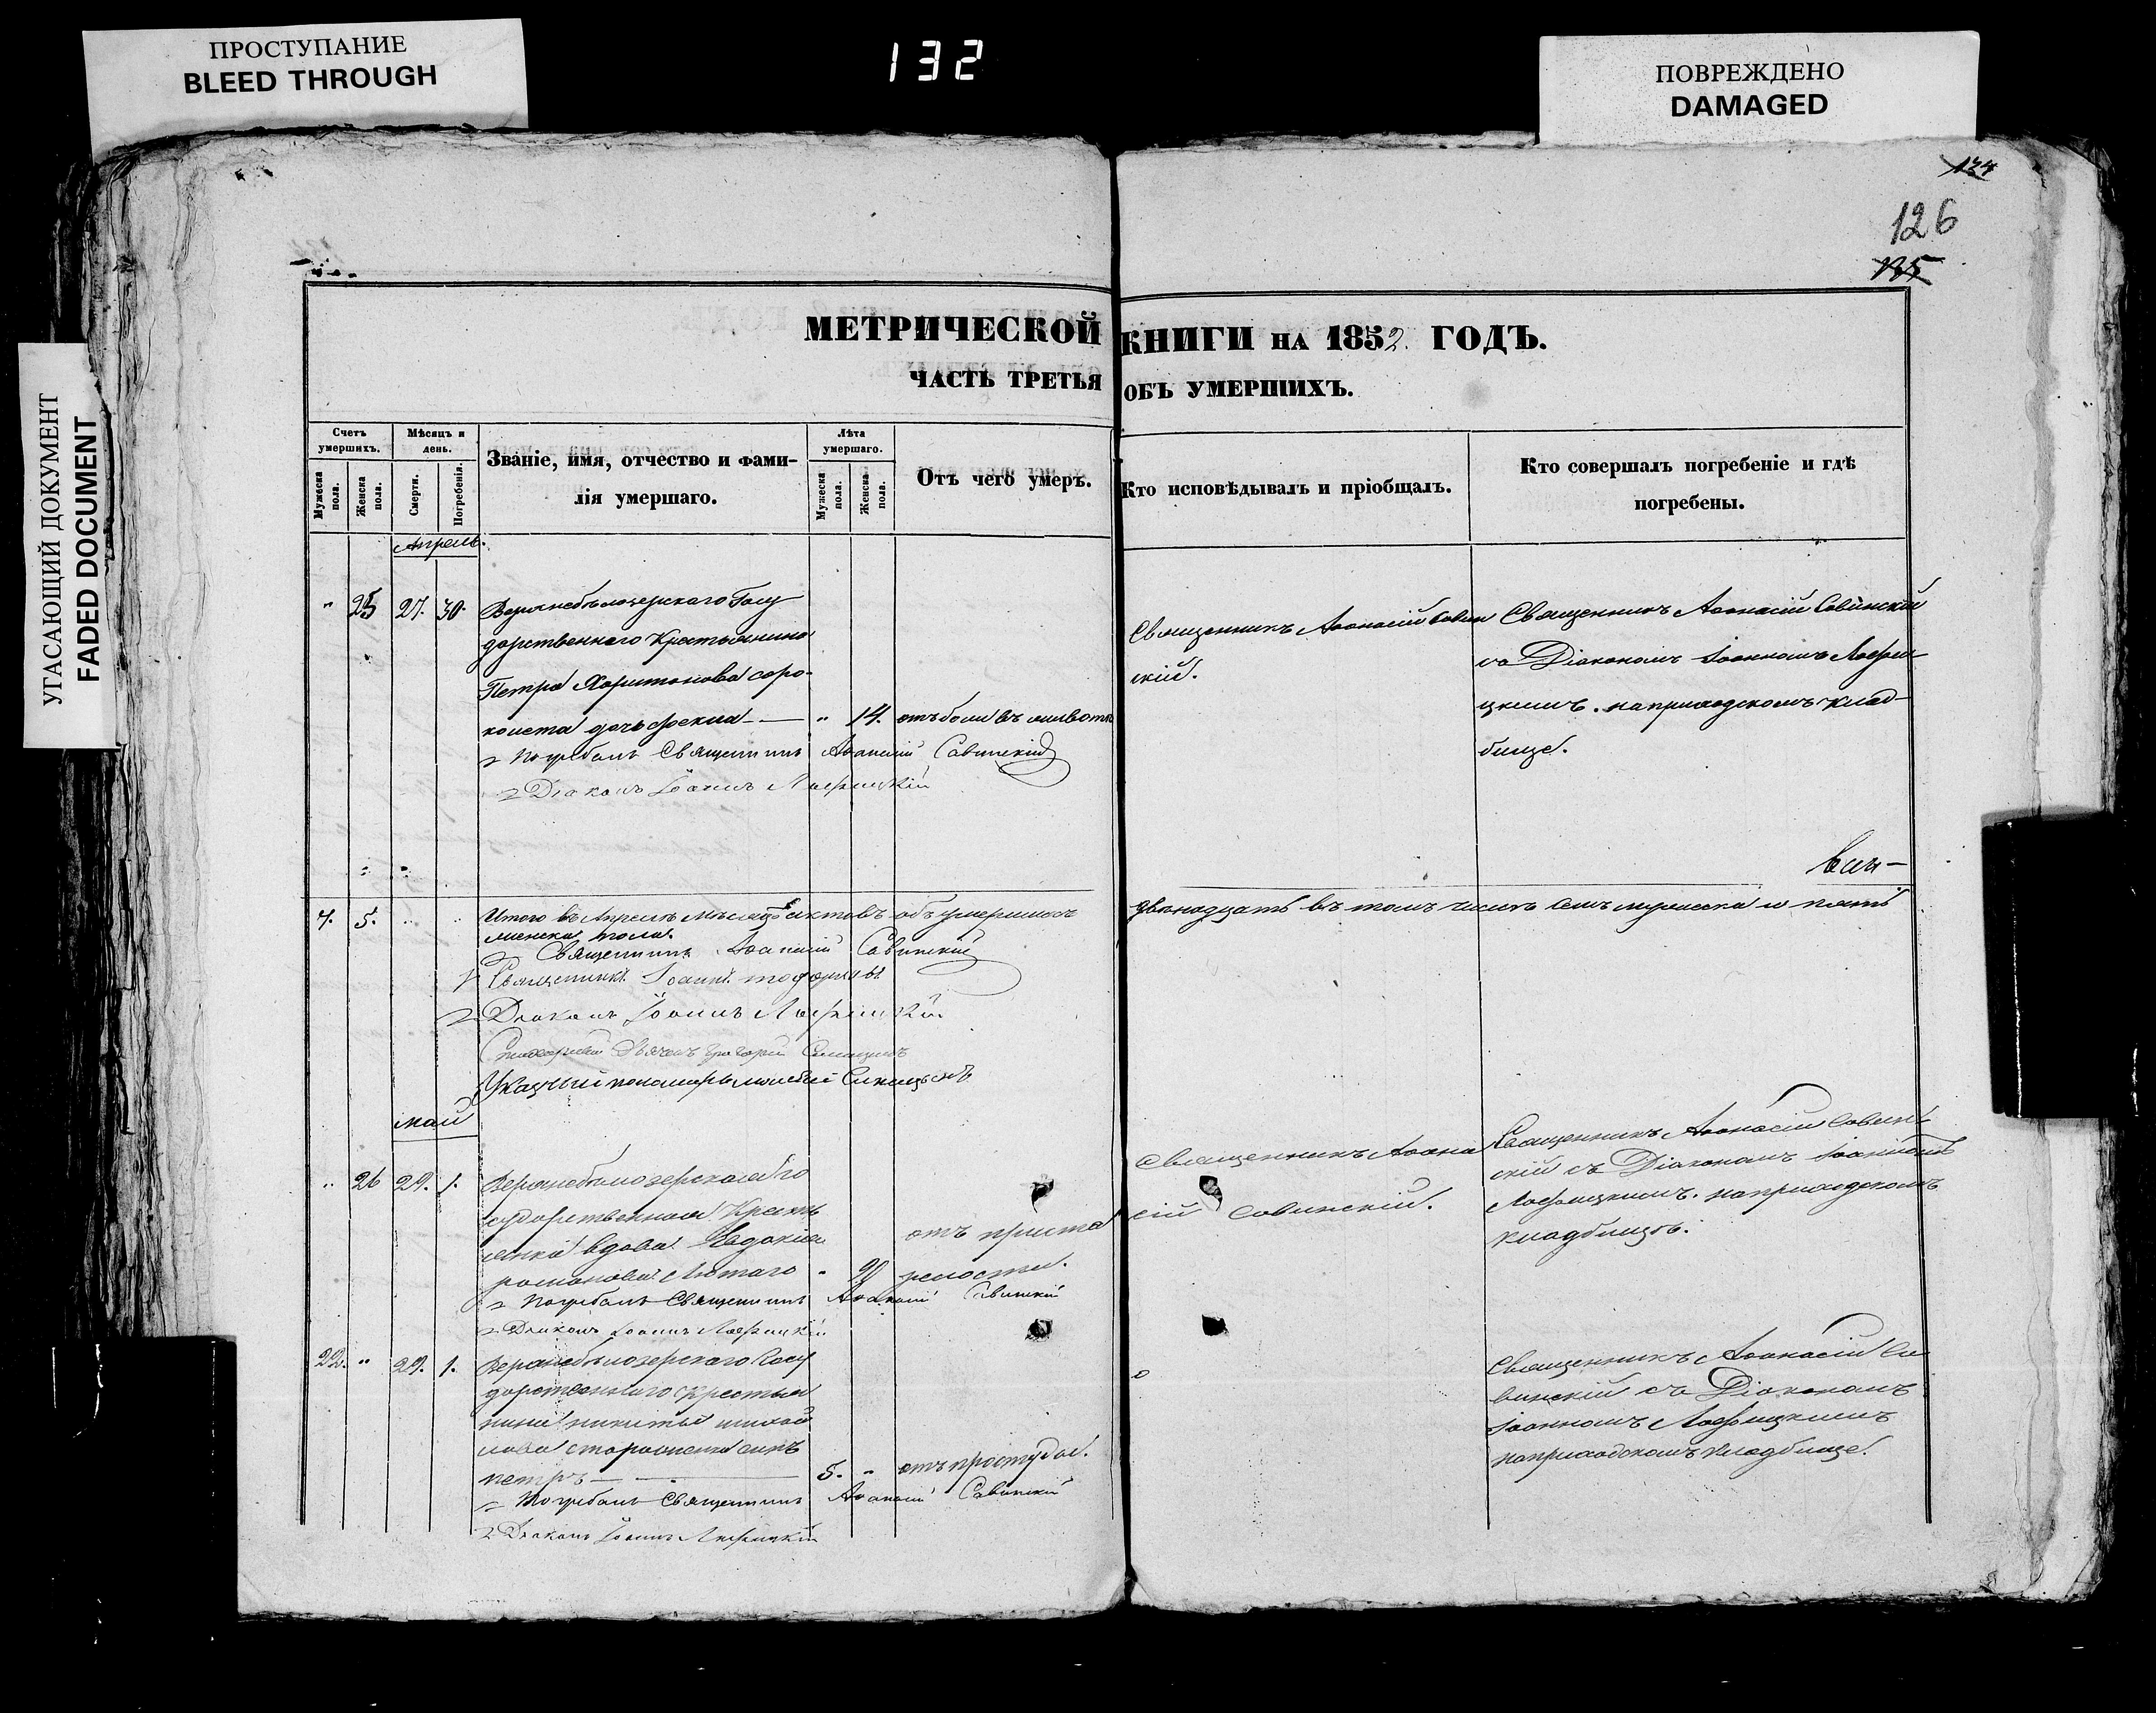 ПРОСТУПАНИЕ
BLEED THROUGH
132
ПОВРЕЖДЕНО
DAMAGED
УГАСАЮЩИЙ ДОКУМЕНТ
FADED DOCUMENT
134
126
135
МЕТРИЧЕСКОЙ КНИГИ НА 1852. ГОДЪ.
ЧАСТЬ ТРЕТЬЯ ОБЪ УМЕРШИХЪ.
Счетъ умершихъ.
Мужеска пола.
Женска пола.
Мѣсяцъ и день.
Смерти.
Погребенія.
Званіе, имя, отчество и фамилія умершаго.
Лѣта умершаго.
Мужеска пола.
Женска пола.
Отъ чего умеръ.
Кто исповѣдывалъ и пріобщалъ.
Кто совершалъ погребеніе и гдѣ погребены.
Апрель.
" 25 27. 30.
Верхнебѣлозерскаго Госу
дарственнаго Крестьянина
Петра Харитонова соро-
кпета дочь Фекла — " 14. отъ боли въ животѣ
Погребалъ Священникъ Аѳанасій Савинскій
Діаконъ Іоаннъ Лаврицкій
Священникъ Аѳанасій Савин
скій.
Священникъ Аѳанасій Савинскій
съ Діакономъ Іоанномъ Лаври
цкимъ. на приходскомъ клад-
бище.
7. 5. " "
Итого въ Апрелѣ мѣсяцѣ актовъ объ умершихъ двенадцать въ томъ числѣ семь мужеска и пять
женска пола.
Священникъ Аѳанасій Савинскій
Священникъ Іоаннъ
Діаконъ Іоаннъ Лаврицкій
Дьячекъ Григорій
Указный пономарь
май
" 26 29. 1.
Верхнебѣлозерская го
сударственная Кресть
янка вдова Евдокия
романова Лютаго " 90 отъ преста
релости.
Погребалъ Священникъ Аѳанасій Савинскій
Діаконъ Іоаннъ Лаврицкій
Священникъ Аѳана
сій Савинскій.
Священникъ Аѳанасій Савин
скій съ Діакономъ Іоанномъ
Лаврицкимъ. на приходскомъ
кладбищѣ.
22. " 29. 1.
Верхнебѣлозерскаго Госу
дарственнаго крестья
нина никиты михай
лова сынъ
петръ — 5. " отъ простуды.
Погребалъ Священникъ Аѳанасій Савинскій
Діаконъ Іоаннъ Лаврицкій
Священникъ Аѳанасій Са
винскій съ Діакономъ
Іоанномъ Лаврицкимъ
на приходскомъ кладбище.